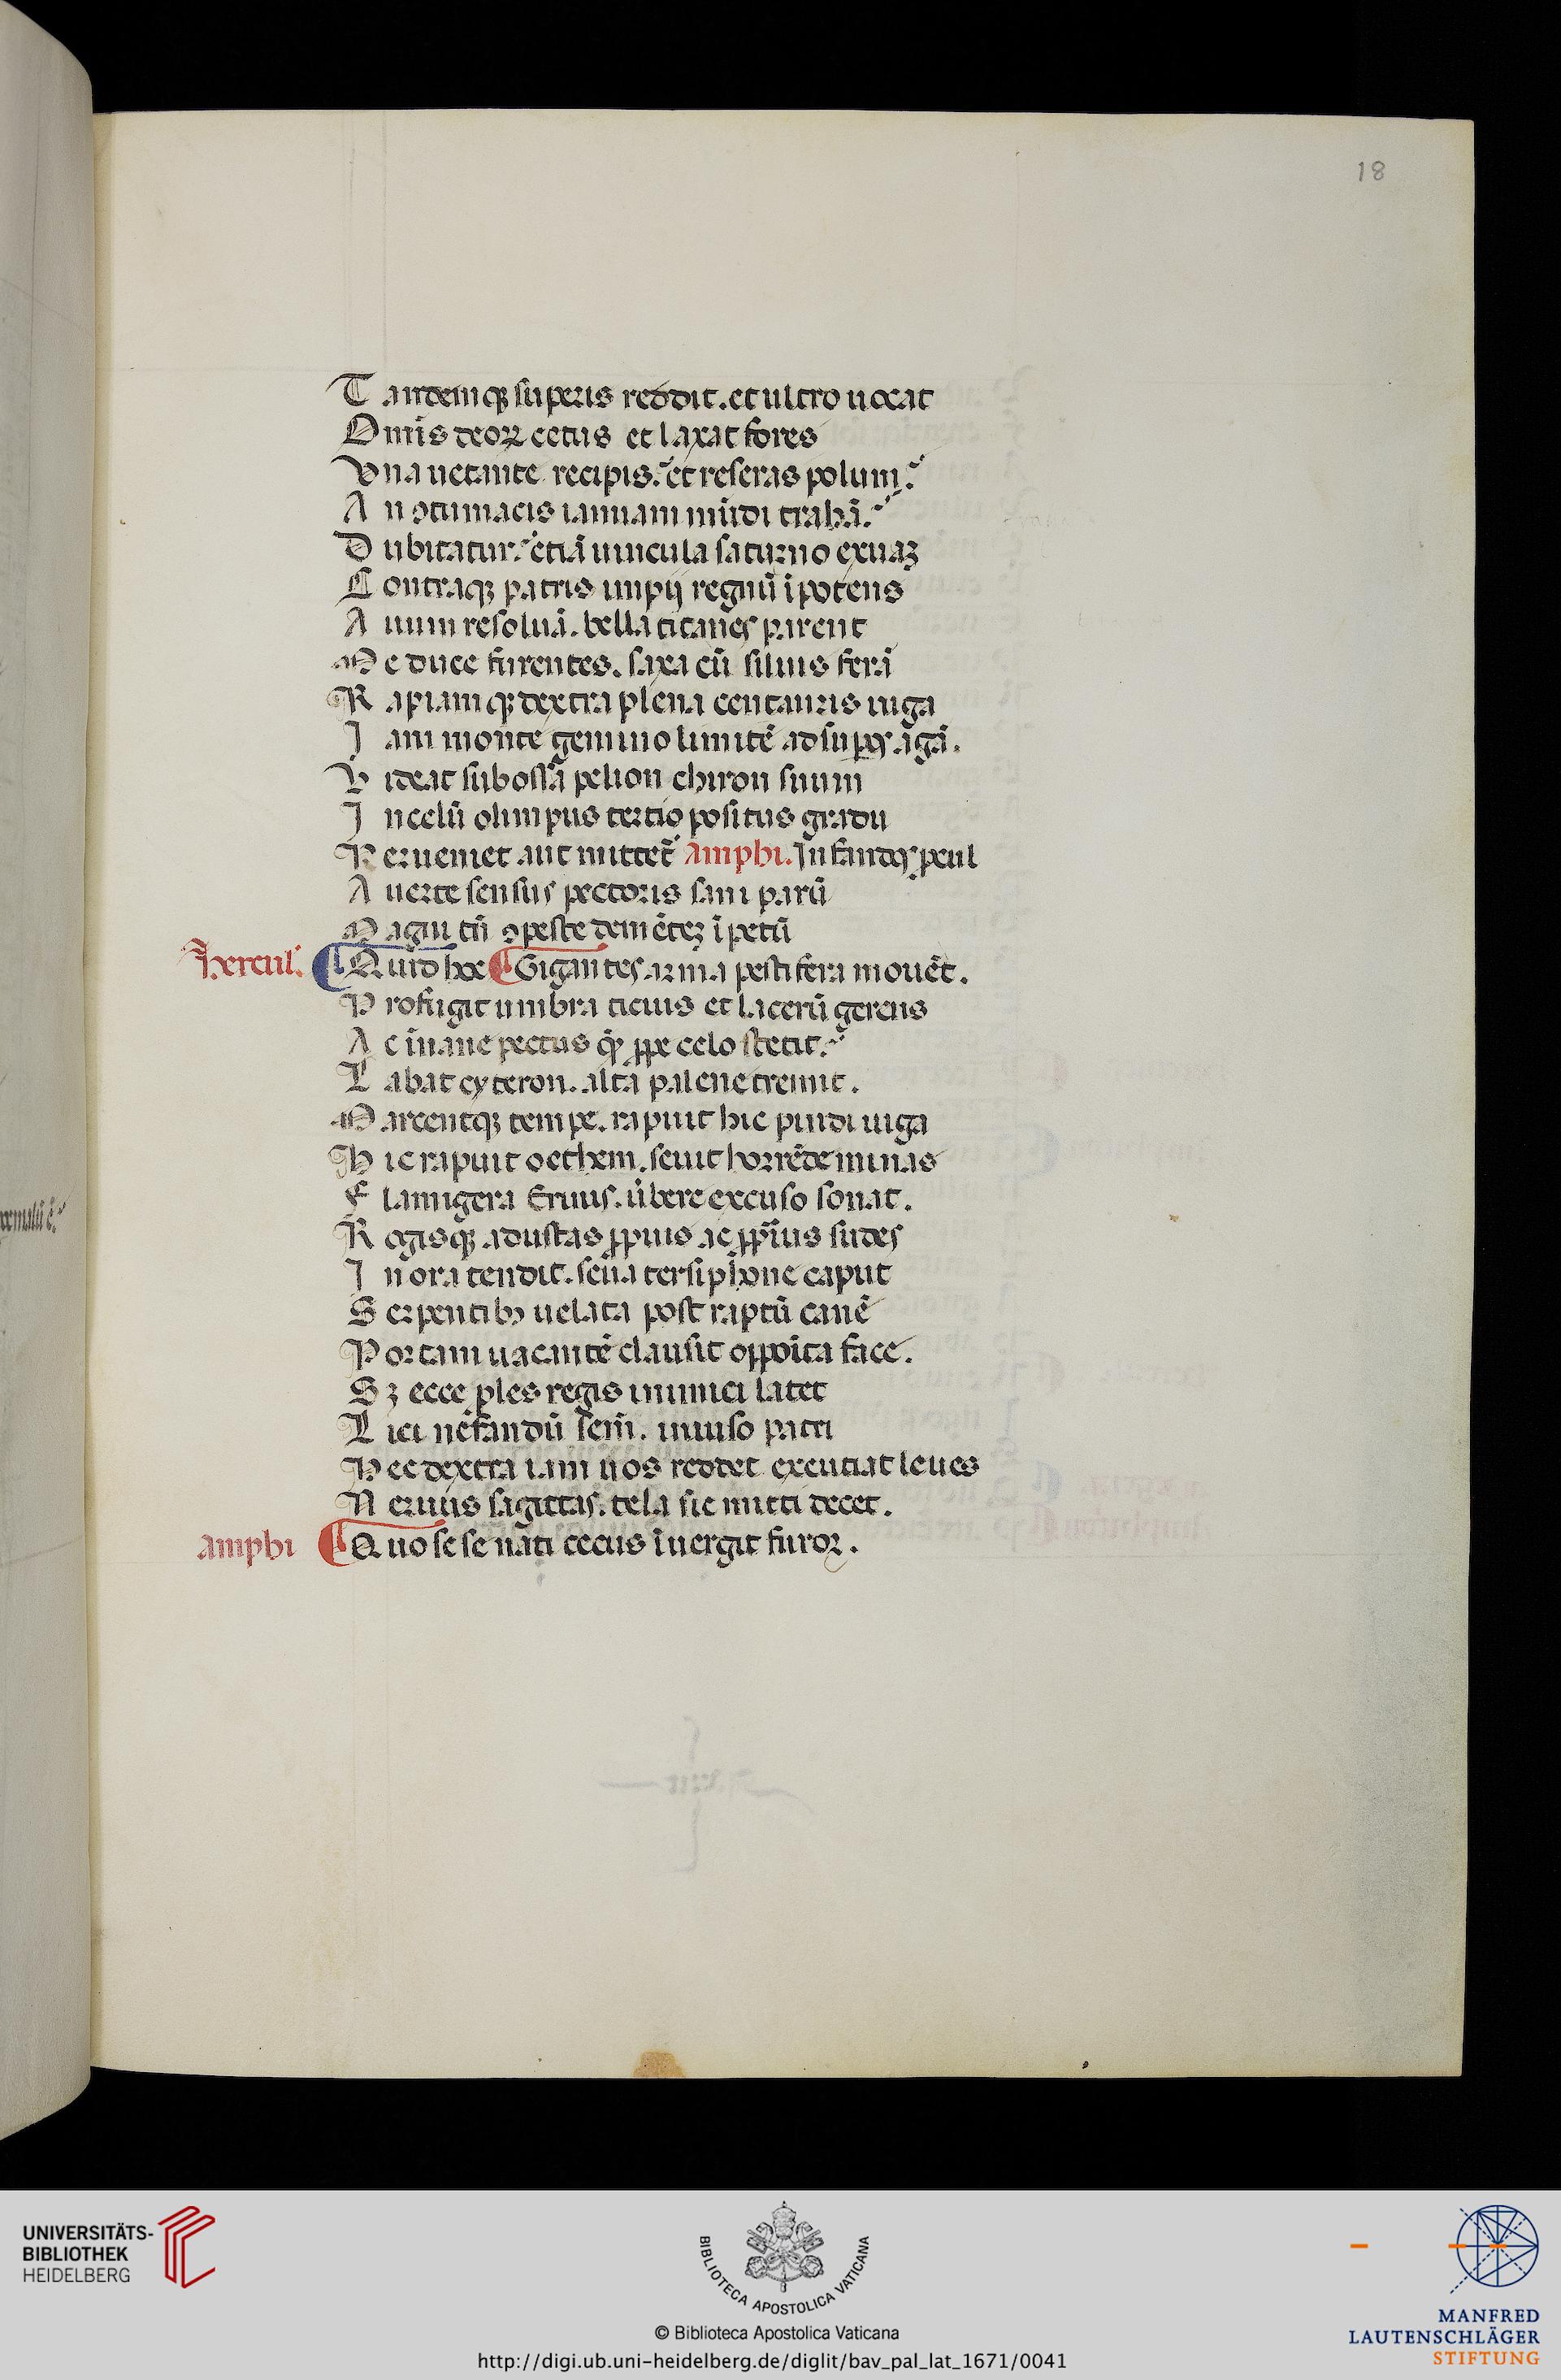 18
Tandemq; superis reddit. et ultro uocat
Omis deoꝝ cetus et laxat fores
Vna uetante recipis. et reseras polum.
An ꝯtumacis ianuam mūdi trahā.
Dubitatur. etiā uincula saturno exuaꝫ
Contraq; patris impij regnū īpotens
Auum resoluā. bella titanes parent
Me duce furentes. saxa cū siluis ferā
Rapiamq; dextra plena centauris iuga
Iam monte gemino limitē ad supos agā.
Videat sub ossā pelion chiron suum
In celū olimpus tertio positus gradu
Perueniet aut mittet Amphi. Infandos pcul
Auerte sensus pectoris sani parū
Magni tn̄ ꝯpesce demēteꝫ īpetū
Hercul. Quid hoc Gigantes arma pestifera mouēt.
Profugit umbra ticius et lacerū gerens
Ac inane pectus q̄ ꝓpe celo stetit.
Labat cyteron. alta palene tremit.
Marcentq; tempe. rapuit hic pindi iuga
Hic rapuit oethem. seuit horrēde minas
Flamigera Erinis. ūbere excuso sonat.
Rogisq; adustas ꝓpius ac ꝓpius sudes
In ora tendit. seua tersiphone caput
Serpentibꝰ uelata post raptū canē
Portam uacantē clausit oppoīta face.
Sꝫ ecce ꝓles regis inimici latet
Lici nefandū sem̄. inuiso patri
Hec dextra iam uos reddet excutiat leues
Neruus sagittas. tela sic mitti decet.
amphi Quo se se nati cecus īuergit furor.
UNIVERSITÄTS-
BIBLIOTHEK
HEIDELBERG
BIBLIOTECA APOSTOLICA VATICANA
© Biblioteca Apostolica Vaticana
http://digi.ub.uni-heidelberg.de/diglit/bav_pal_lat_1671/0041
MANFRED
LAUTENSCHLÄGER
STIFTUNG